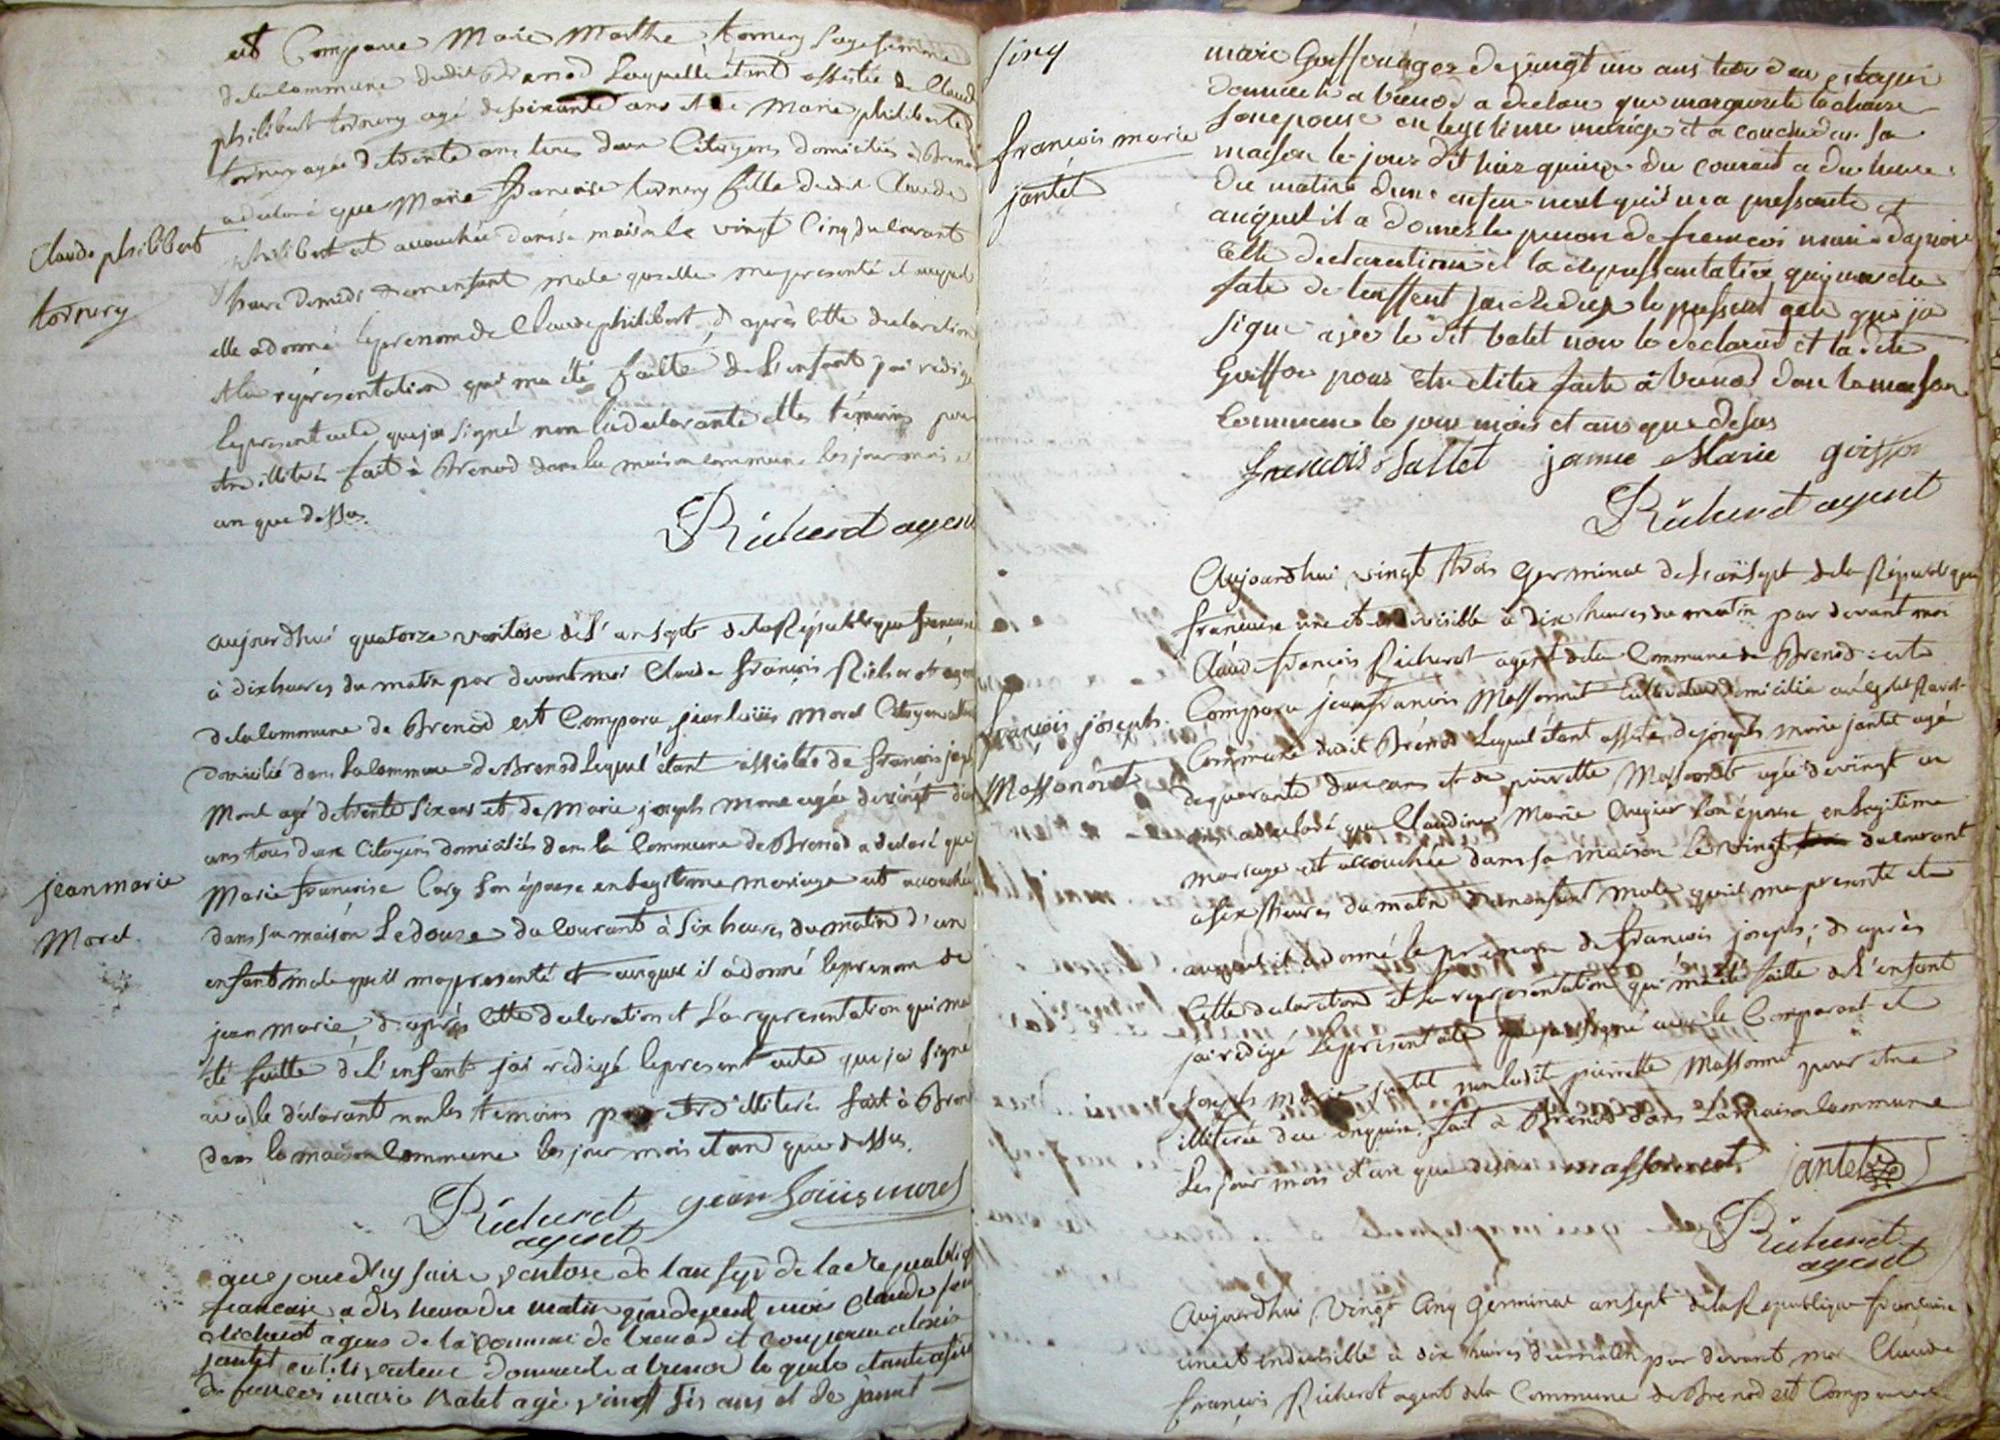 est Comparue Marie Marthe tornery sage femme
de la Commune dudit Brenod Laquelle étant assistée de Claude
philibert tornery agé de soixante ans et de Marie philiberte
tornery agée de trente ans tous deux Citoyens domiciliés à Brenod
a declaré que Marie françoise tornery fille dudit Claude
philibert est accouchée dans sa maison le vingt Cinq du Courant
heure de midi d'un enfant male qu'elle ma presenté et auquel
elle a donné le prenom de Claude philibert, d'après cette declaration
et la représentation qui ma été faitte de L'enfant j'ai redigé
le present acte que j'ai signé non la declarante et les témoins pour
etre illiterés fait à Brenod dans la maison commune les jour mois et
an que dessus.
Claude philibert
tornery
Richerot agent
aujourdhui quatorze ventose de L'an sept de la République francaise
à dix heures du matin par devant moi Claude françois Richerot agent
de la Commune de Brenod est Comparu jean louis morel Citoyen
domicilié dans la Commune de Brenod Lequel étant assistée de francois joseph
Morel agé de trente six ans et de Marie joseph Morel agée de vingt
ans tous deux Citoyens domiciliés dans la Commune de Brenod a declaré que
Marie francoise Cary son épouse en Legitime mariage est accouchée
dans sa maison Le douze du Courant à six heures du matin d'un
enfant male qu'il ma presenté et auquel il a donné le prenom de
jean marie, d'après cette declaration et La representation qui ma
été faitte de L'enfant j'ai redigé le present acte que j'ai signé
avec le declarant non les témoins pour etre illiterés fait à Brenod
dans la maison Commune les jour mois et an que dessus.
jean marie
Morel
Richerot
agent
jean Louis morel
francaise a dis heure du matin
Richerot agent de la commune de brenod et
jantet cultivateur domicile a brenod le quele
de francois marie Ballet agé vint sis ans et de janne
marie Goiffon
domicile a brenod a declare que marguerite
son epouse en legitime mariage et acouche dan sa
maison le jour dit hier quinze du courant a dix heure
du matin dun enfen
auquel il a donner le prenon de francois marie dapres
cette declaration et la representation qui
fate de lenffent jai redige le present acte que jai
signe avec le dit balet non le declarant et la dite
Goiffon pour etre fate a brenod dan la maison
commune le jour mois et ans que desus
francois marie
jantet
francois Ballet janne Marie goiffon
Richerot agent
Aujourdhui vingt trois Germinal de L'an sept de la République
francaise une et indivisible à dix heures du matin par devant moi
Claude françois Richerot agent de la Commune de Brenod est
Comparu jean françois Massonnet Cultivateur domicilié
Commune dudit Brénod Lequel étant assisté de joseph marie jantet agé
de quarante deux ans et de pierrette Massonet agée de vingt un
ans a declaré que Claudine Marie Augier son épouse en Legitime
mariage est accouchée dans sa maison Le vingt trois du Courant
a six heures du matin d'un enfant male qu'il ma presenté et
auquel il a donné le prenom de francois joseph; d'après
cette declaration et la représentation qui ma été faitte de L'enfant
j'ai redigé le present acte que j'ai signé avec le Comparant et
joseph Marie jantet non ladite pierrette Massonnet pour etre
illiterée de ce enquise. fait à Brenod dans La maison Commune
Les jour mois et an que dessus
françois joseph
Massonnet
massonnet jantet
Richerot
agent
Aujourdhui Vingt Cinq Germinal an sept de la Republique francaise
une et indivisible à dix heures du matin par devant moi Claude
françois Richerot agent de la Commune de Brenod est Comparue